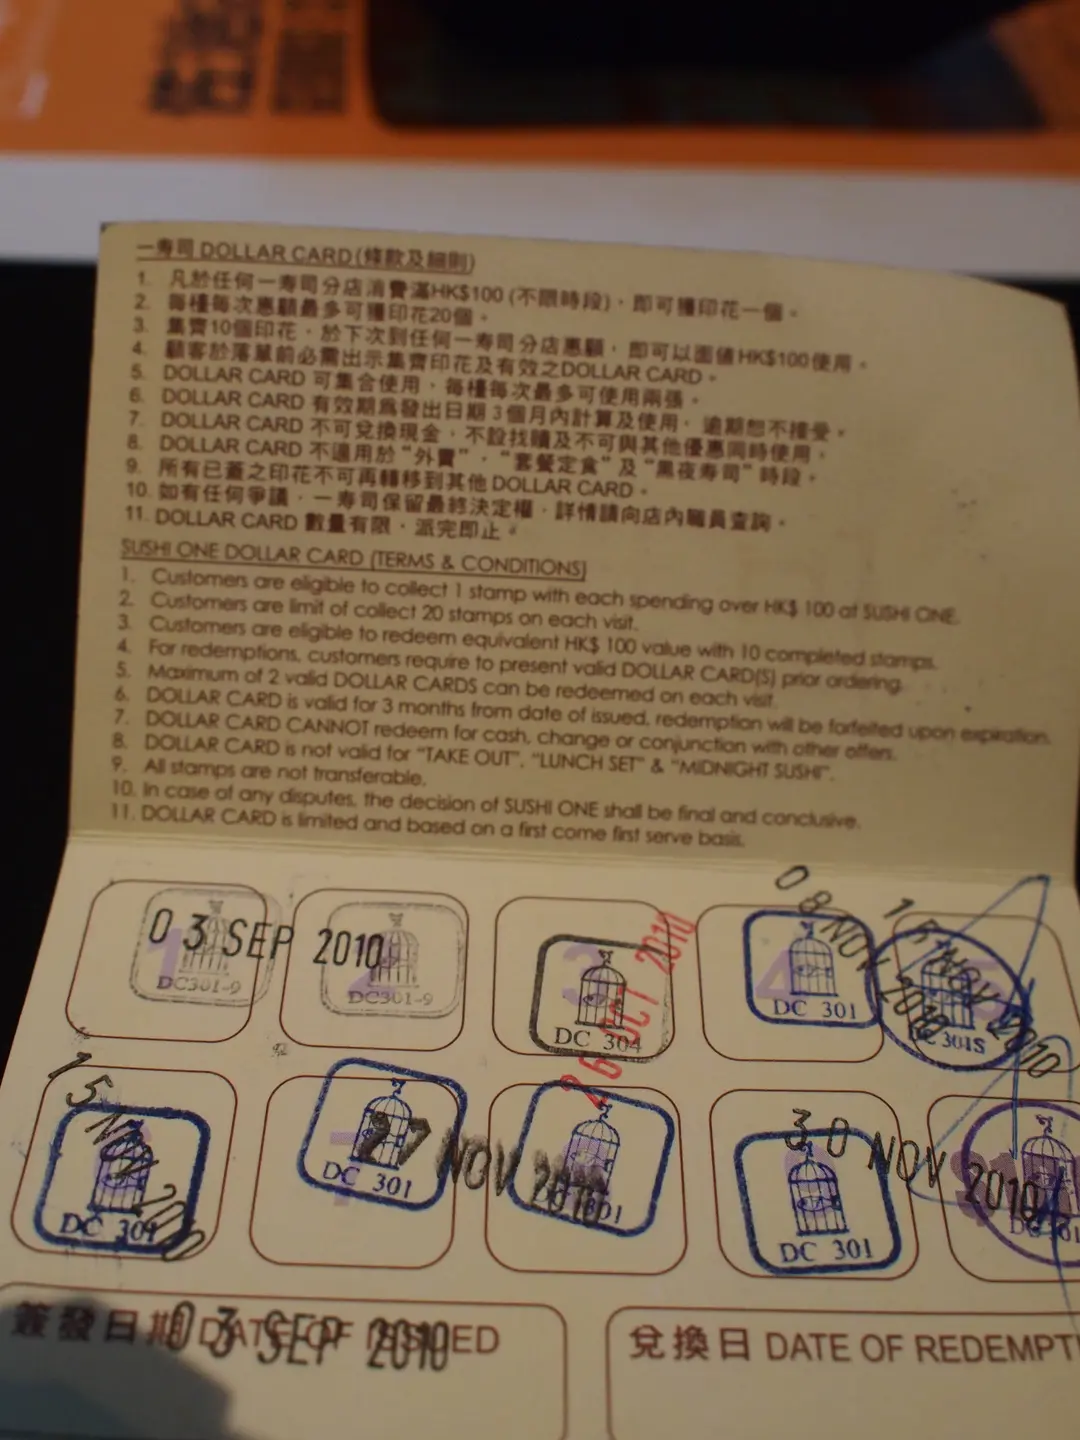 一寿司 DOLLAR CARD (條款及細則)
1. 凡於任何一寿司分店消費滿HK$100 (不限時段)，即可獲印花一個。
2. 每檯每次惠顧最多可獲印花20個。
3. 集齊10個印花，於下次到任何一寿司分店惠顧，即可以面值HK$100使用。
4. 顧客於落單前必需出示集齊印花及有效之DOLLAR CARD。
5. DOLLAR CARD 可集合使用，每檯每次最多可使用兩張。
6. DOLLAR CARD 有效期為發出日期 3 個月內計算及使用，逾期恕不接受。
7. DOLLAR CARD 不可兌換現金，不設找贖及不可與其他優惠同時使用。
8. DOLLAR CARD 不適用於 "外賣"，"套餐定食" 及 "黑夜寿司" 時段。
9. 所有已蓋之印花不可再轉移到其他 DOLLAR CARD。
10. 如有任何爭議，一寿司保留最終決定權，詳情請向店內職員查詢。
11. DOLLAR CARD 數量有限，派完即止。
SUSHI ONE DOLLAR CARD (TERMS & CONDITIONS)
1. Customers are eligible to collect 1 stamp with each spending over HK$ 100 at SUSHI ONE.
2. Customers are limit of collect 20 stamps on each visit.
3. Customers are eligible to redeem equivalent HK$ 100 value with 10 completed stamps.
4. For redemptions, customers require to present valid DOLLAR CARD(S) prior ordering.
5. Maximum of 2 valid DOLLAR CARDS can be redeemed on each visit.
6. DOLLAR CARD is valid for 3 months from date of issued, redemption will be forfeited upon expiration.
7. DOLLAR CARD CANNOT redeem for cash, change or conjunction with other offers.
8. DOLLAR CARD is not valid for "TAKE OUT", "LUNCH SET" & "MIDNIGHT SUSHI".
9. All stamps are not transferable.
10. In case of any disputes, the decision of SUSHI ONE shall be final and conclusive.
11. DOLLAR CARD is limited and based on a first come first serve basis.
03 SEP 2010
1 DC301-9
2 DC301-9
3 DC 304 26 OCT 2010
4 DC 301 08 NOV 2010
15 NOV 2010
15 NOV
DC 301
7 DC 301 27 NOV 2010
DC 301 30 NOV 2010
簽發日期 DATE OF ISSUED 03 SEP 2010
兌換日 DATE OF REDEMPT